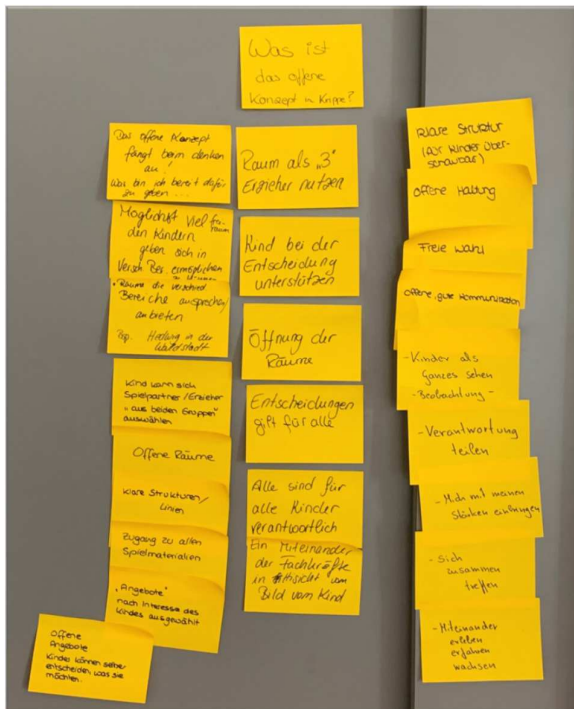 Was ist
das offene
Konzept in Krippe?
Das offene Konzept
fängt beim denken
an!
Was bin ich bereit dafür
zu geben ...
Möglichst viel
den Kindern
geben sich in
Versch. Ber. ermöglichen
Räume die verschied.
Bereiche ansprechen/
anbieten
in der
Kind kann sich
Spielpartner/Erzieher
"aus beiden Gruppen"
auswählen
Offene Räume
klare Strukturen/
Linien
Zugang zu allen
Spielmaterialien
"Angebote"
nach Interesse des
Kindes ausgewählt
Offene
Angebote
Kinder können selber
entscheiden was sie
möchten.
Raum als „3"
Erzieher nutzen
Kind bei der
Entscheidung
unterstützen
Öffnung der
Räume
Entscheidungen
gift für alle
Alle sind für
alle Kinder
verantwortlich
Ein Miteinander
der Fachkräfte
in vom
Bild vom Kind
Klare Struktur
(für Kinder über-
schaubar)
Offene Haltung
Freie Wahl
Offene, gute Kommunikation
- Kinder als
Ganzes sehen
- Beobachtung -
- Verantwortung
teilen
- Mich mit meinen
Stärken einbringen
- sich
zusammen
treffen
- Miteinander
erleben
erfahren
wachsen